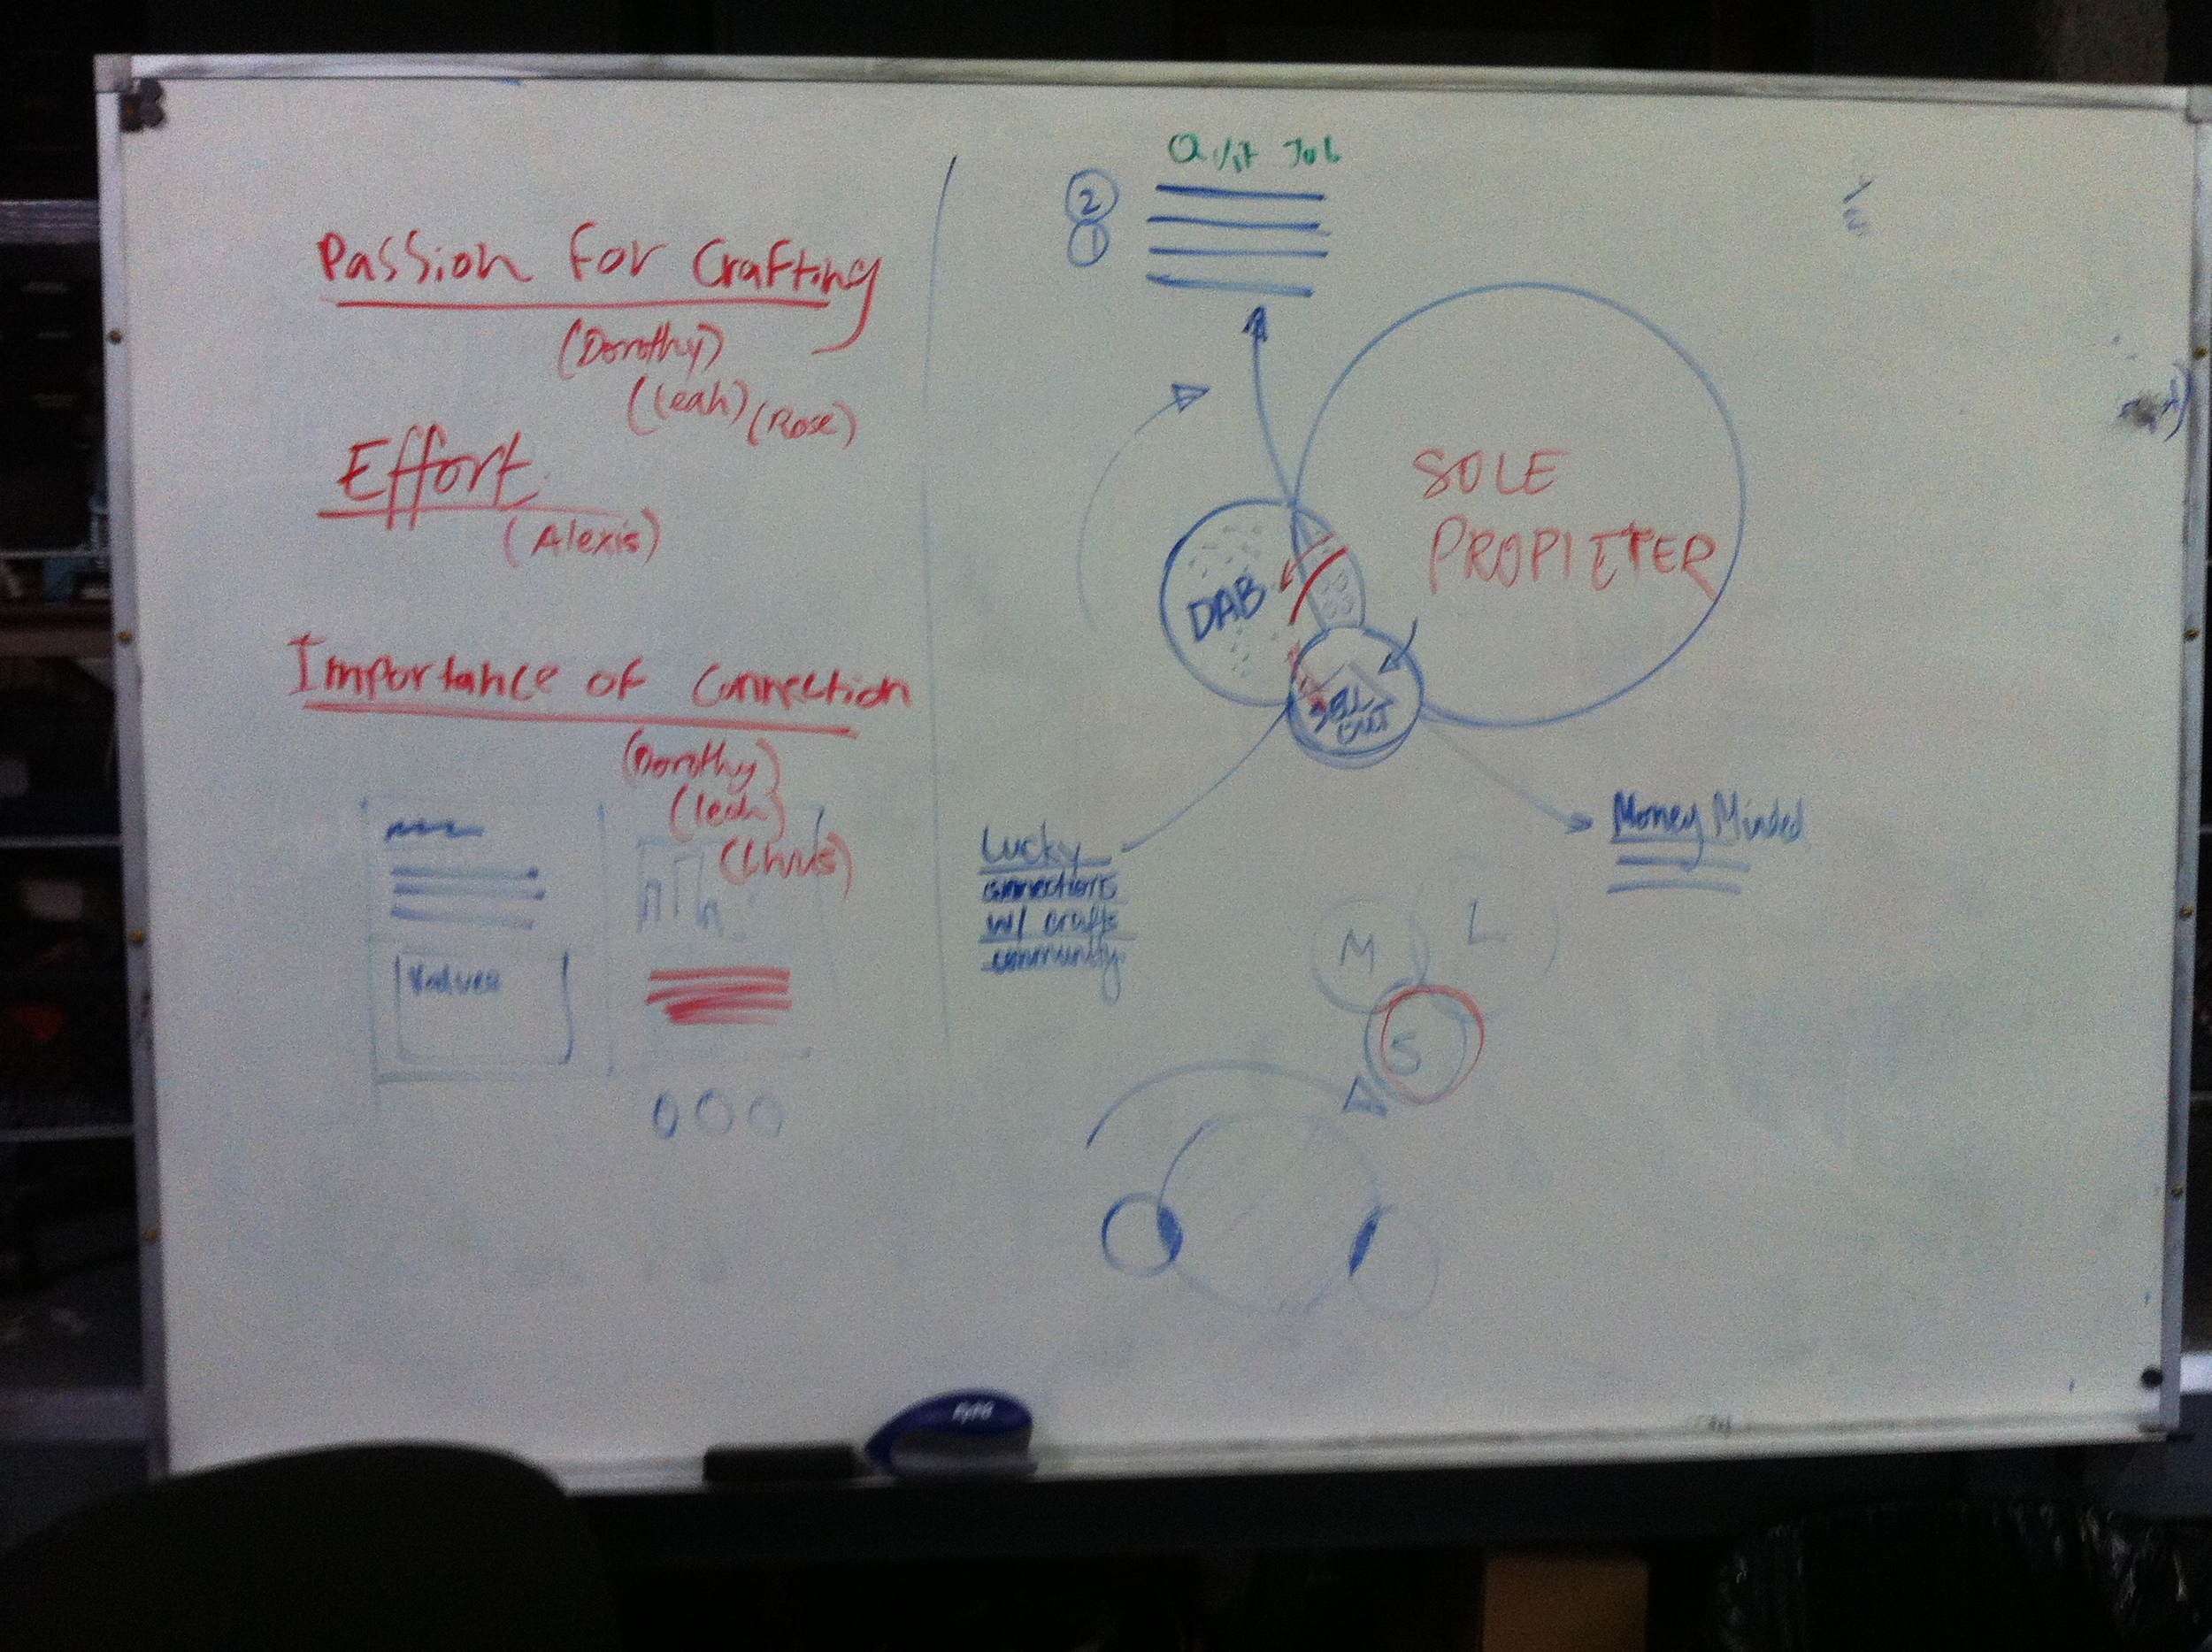 Passion for Crafting
(Dorothy)
(Leah) (Rose)
Effort
(Alexis)
Importance of Connection
(Dorothy)
(Leah)
Values
Quit Job
2
1
SOLE
PROPIETER
DAB
SELL
OUT
Lucky
connections
w/ crafts
community
Money Minded
M
L
S